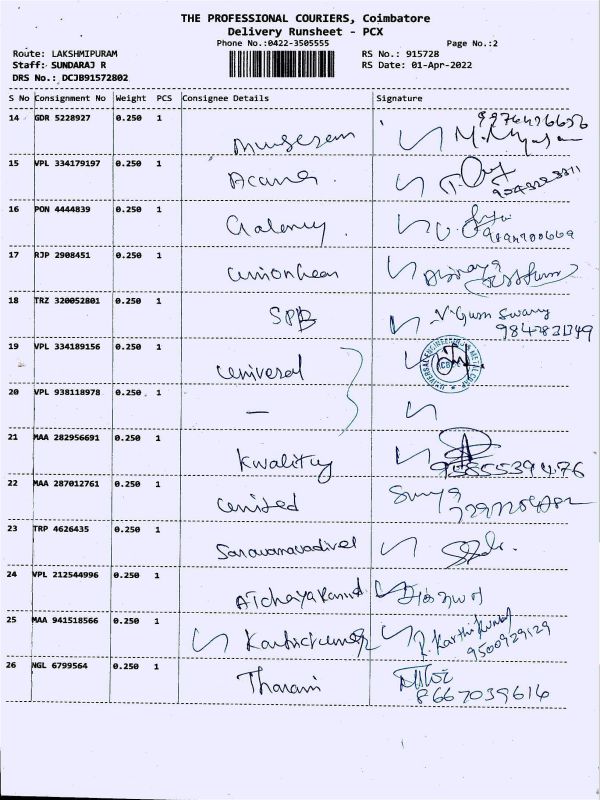 THE PROFESSIONAL COURIERS, Coimbatore
Delivery Runsheet - PCX
Phone No.:0422-3505555 Page No.:2
Route: LAKSHMIPURAM RS No.: 915728
Staff: SUNDARAJ R RS Date: 01-Apr-2022
DRS No.: DCJB91572802
S No Consignment No Weight PCS Consignee Details Signature
14 GDR 5228927 0.250 1
15 VPL 334179197 0.250 1
16 PON 4444839 0.250 1
17 RJP 2908451 0.250 1
18 TRZ 320052801 0.250 1 SPB
9842831349
19 VPL 334189156 0.250 1 Universal
20 VPL 938118978 0.250 1 —
21 MAA 282956691 0.250 1 Kwality
9585539476
22 MAA 287012761 0.250 1 United Surya
23 TRP 4626435 0.250 1 Saravanavadivel
24 VPL 212544996 0.250 1
25 MAA 941518566 0.250 1 Karthickumar R. Karthi Kumar
9500929129
26 NGL 6799564 0.250 1 Tharani
8667039614